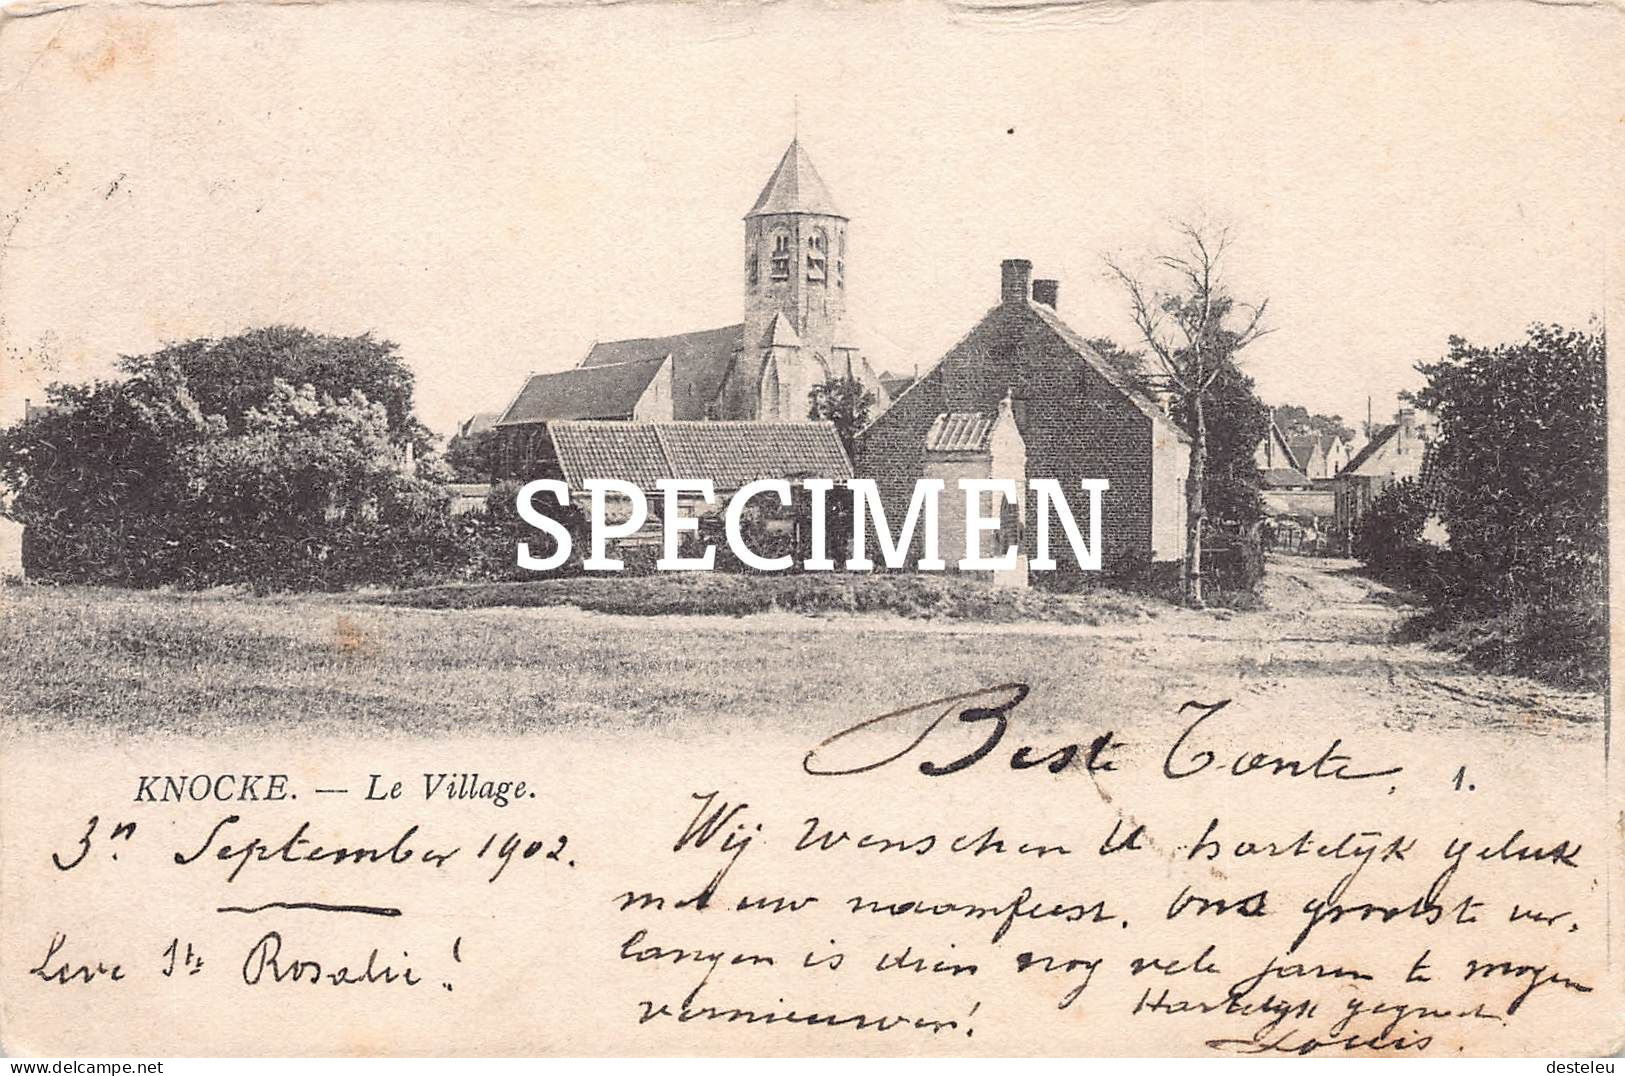 SPECIMEN
KNOCKE. — Le Village.
3n September 1902.
Leve Ste Rosalie!
Beste Tante, 1.
Wij wenschen U hartelijk geluk
met uw naamfeest. Ons grootste ver-
langen is dien nog vele jaren te mogen
vernieuwen!
Hartelijk gegroet.
Louis.
delcampe.net
desteleu